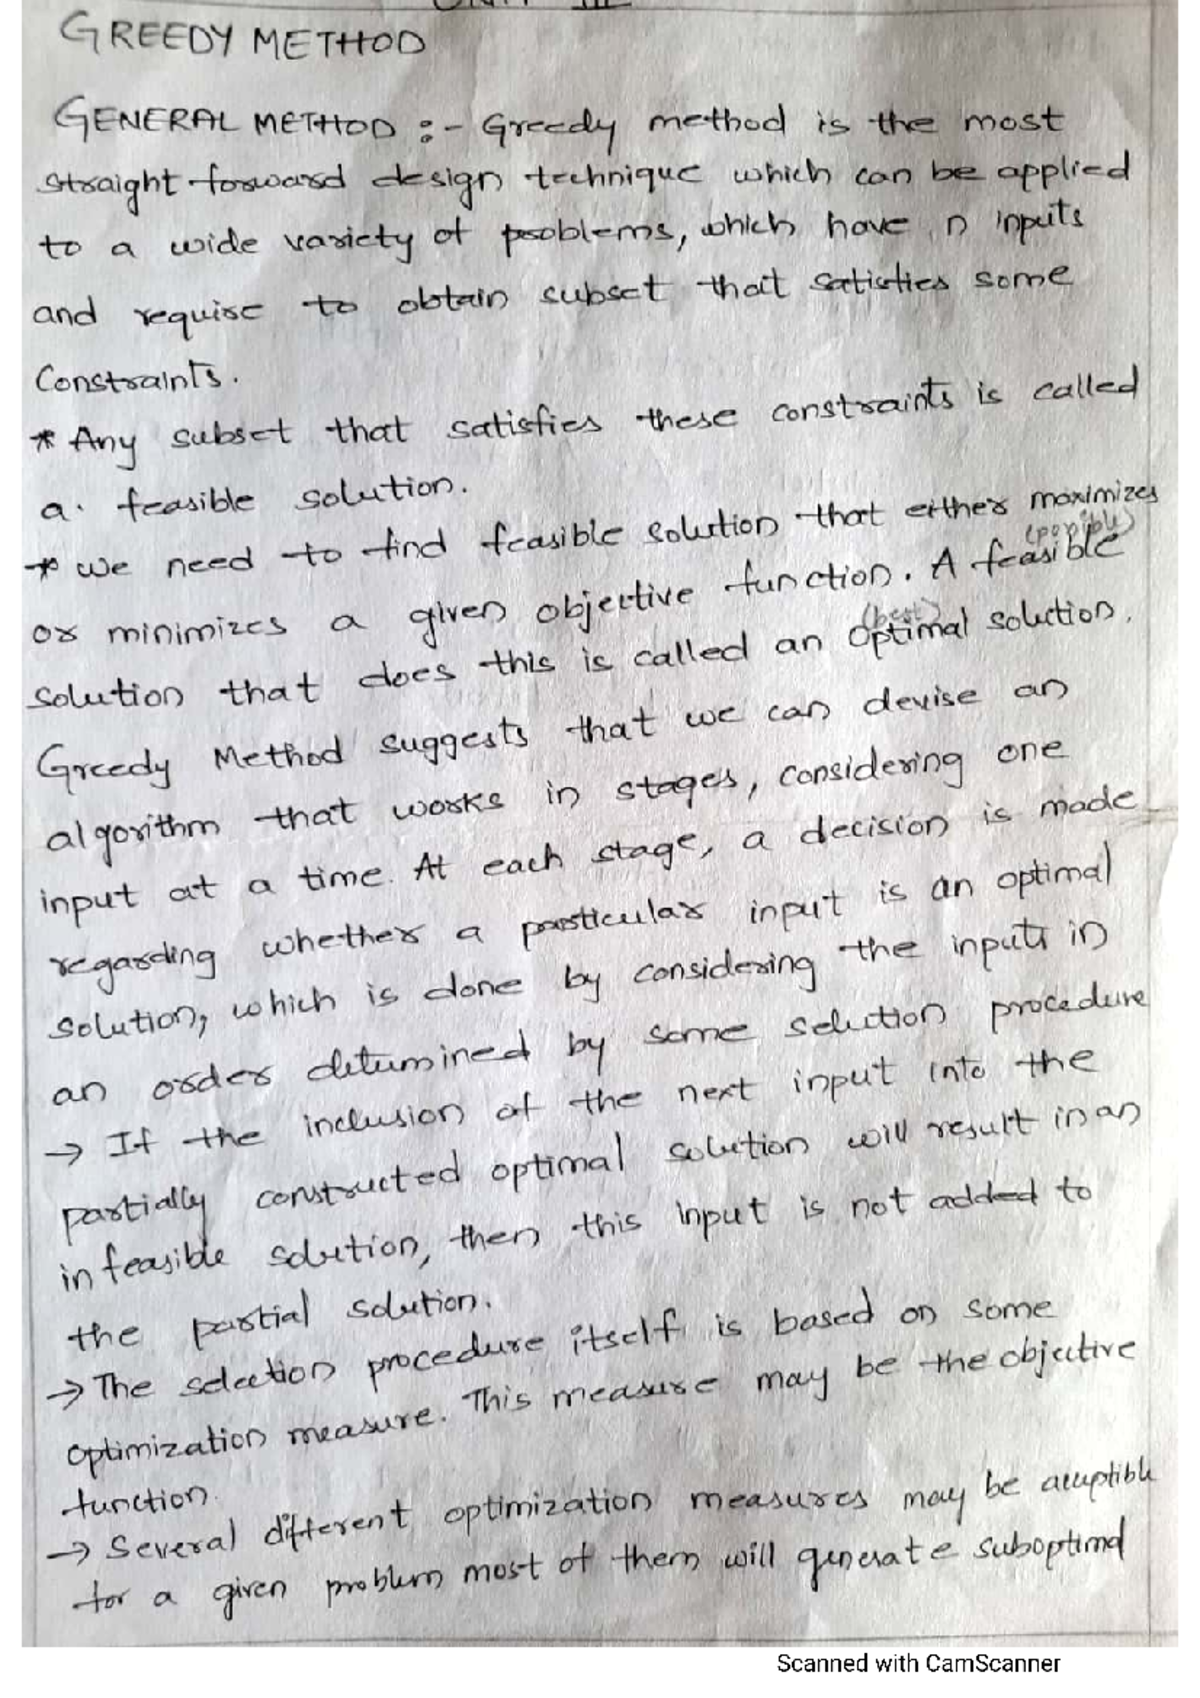 GREEDY METHOD
GENERAL METHOD :- Greedy method is the most
straight forward design technique which can be applied
to a wide variety of problems, which have n inputs
and require to obtain subset that satisfies some
Constraints.
* Any subset that satisfies these constraints is called
a. feasible solution.
* we need to find feasible solution that either maximizes
(possible)
or minimizes a given objective function. A feasible
(best)
solution that does this is called an optimal solution.
Greedy Method suggests that we can devise an
algorithm that works in stages, considering one
input at a time. At each stage, a decision is made
regarding whether a particular input is an optimal
solution, which is done by considering the inputs in
an order determined by some selection procedure
→ If the inclusion of the next input into the
partially constructed optimal solution will result in an
infeasible solution, then this input is not added to
the partial solution.
→ The selection procedure itself is based on some
optimization measure. This measure may be the objective
function.
→ Several different optimization measures may be acceptible
for a given problem most of them will generate suboptimal
Scanned with CamScanner